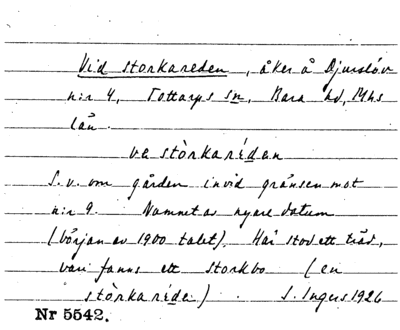 Vid storkareden, åker å Djurslöv
n:r 4, Tottarps sn, Bara hd, Mhs
län.
ve stòrkaréden
S.v. om gården invid gränsen mot
n:r 9. Namnet av nyare datum
(början av 1900 talet). Här stod ett träd,
vari fanns ett storkbo (en
stòrkaréde.) . S. Ingers 1926
Nr 5542.